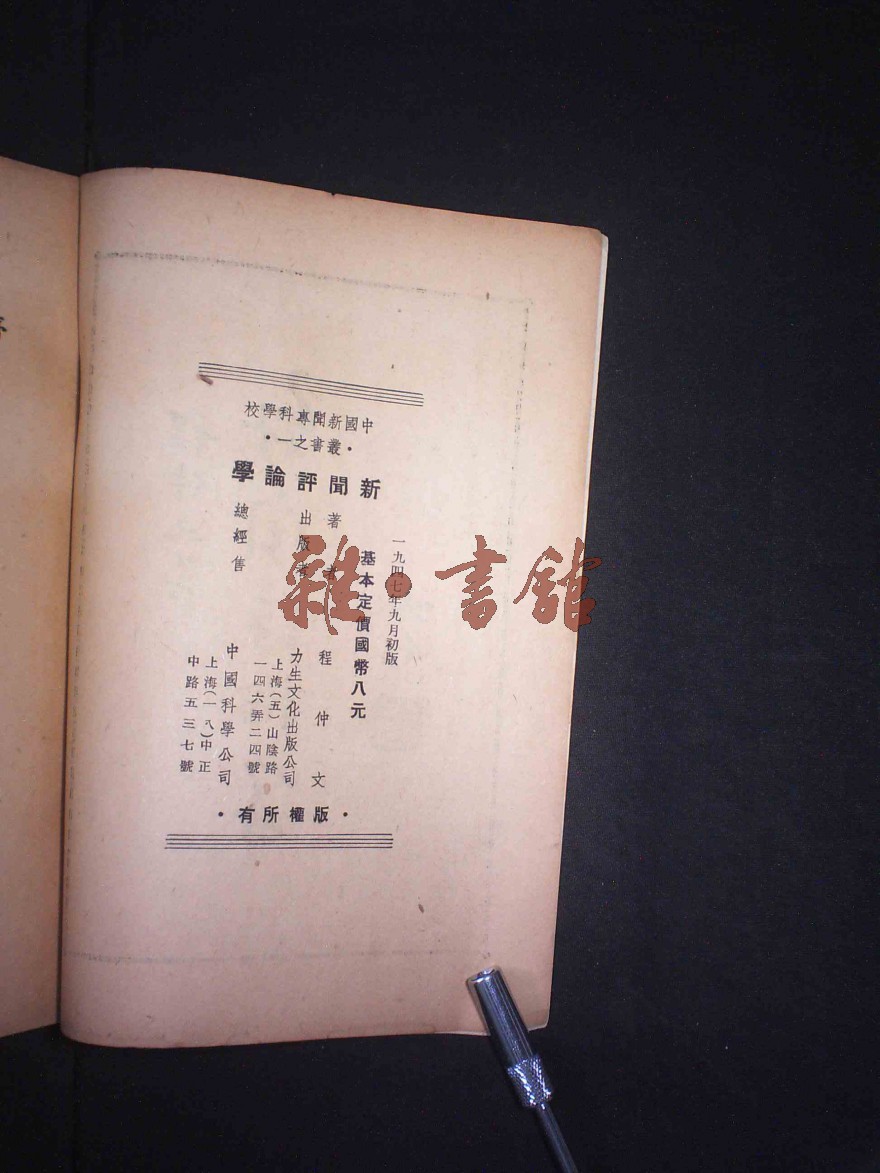 中國新聞專科學校
·叢書之一·
新聞評論學
一九四七年九月初版
基本定價國幣八元
著者 程仲文
出版者 力生文化出版公司
上海(五)山陰路
一四六弄二四號
總經售 中國科學公司
上海(一八)中正
中路五三七號
·版權所有·
雜·書館